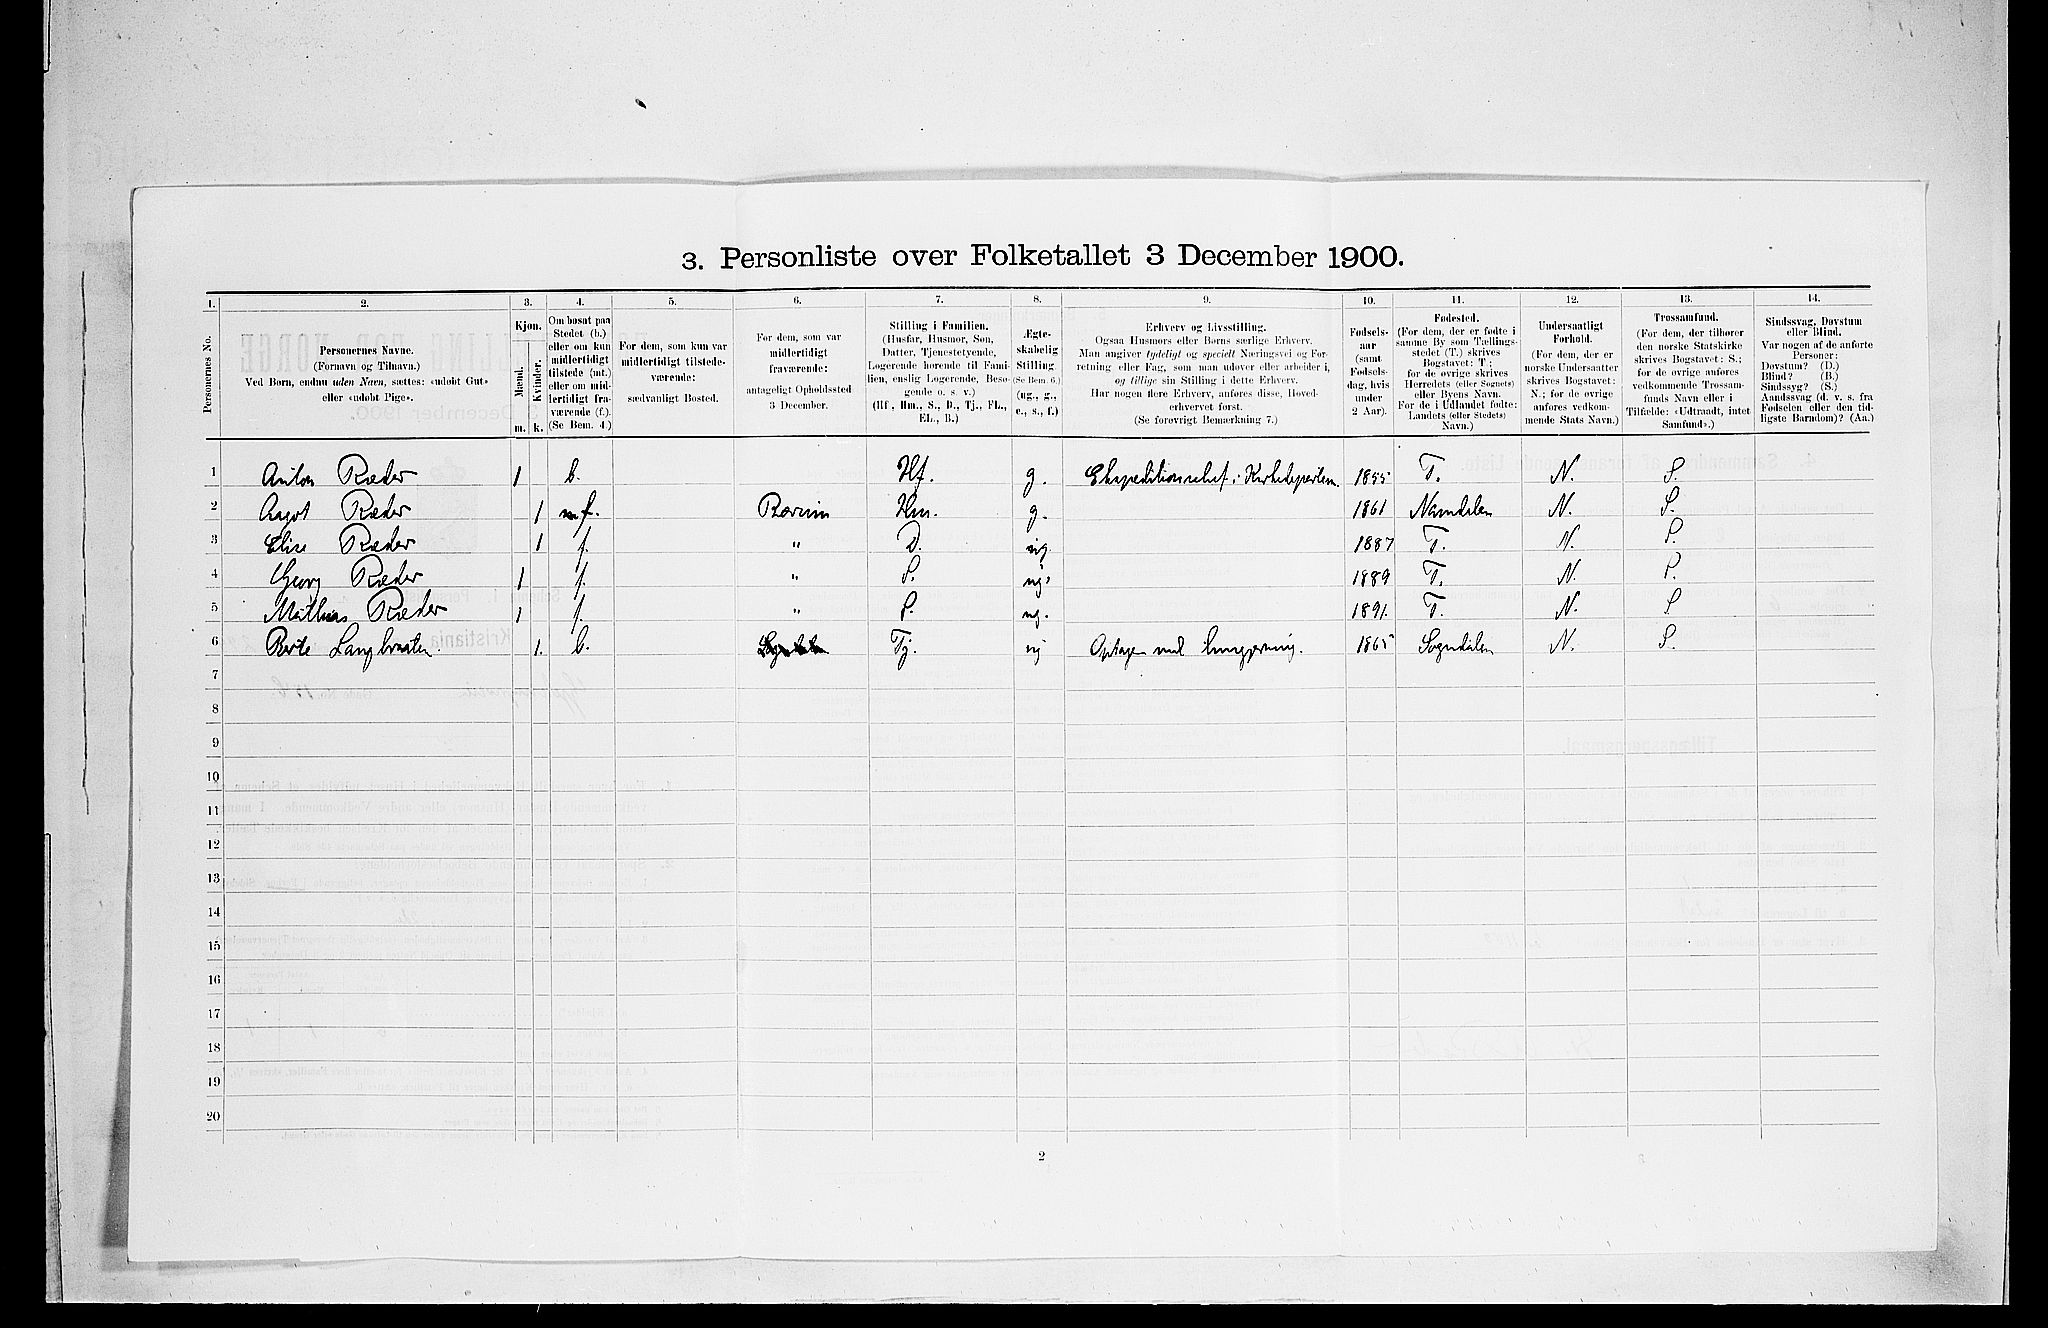 3. Personliste over Folketallet 3 December 1900.
1. 2. 3. 4. 5. 6. 7. 8. 9. 10. 11. 12. 13. 14.
Personernes No.
Personernes Navne.
(Fornavn og Tilnavn.)
Ved Børn, endnu uden Navn, sættes: «udøbt Gut»
eller «udøbt Pige».
Kjøn.
Mænd.
Kvinder.
m. k.
Om bosat paa
Stedet (b.)
eller om kun
midlertidigt
tilstede (mt.)
eller om mid-
lertidigt fra-
værende (f.).
(Se Bem. 4.)
For dem, som kun var
midlertidigt tilstede-
værende:
sædvanligt Bosted.
For dem, som var
midlertidigt
fraværende:
antageligt Opholdssted
3 December.
Stilling i Familien.
(Husfar, Husmor, Søn,
Datter, Tjenestetyende,
Logerende hørende til Fami-
lien, enslig Logerende, Besø-
gende o. s. v.)
(Hf., Hm., S., D., Tj., FL.,
EL., B.)
Ægte-
skabelig
Stilling
(Se Bem. 6.)
(ug., g.,
e., s., f.)
Erhverv og Livsstilling.
Ogsaa Husmors eller Børns særlige Erhverv.
Man angiver tydeligt og specielt Næringsvei og For-
retning eller Fag, som man udøver eller arbeider i,
og tillige sin Stilling i dette Erhverv.
Har nogen flere Erhverv, anføres disse, Hoved-
erhvervet først.
(Se forøvrigt Bemærkning 7.)
Fødsels-
aar
(samt
Fødsels-
dag, hvis
under
2 Aar).
Fødested.
(For dem, der er fødte i
samme By som Tællings-
stedet (T.) skrives
Bogstavet: T ;
for de øvrige skrives
Herredets (eller Sognets)
eller Byens Navn.
For de i Udlandet fødte:
Landets (eller Stedets)
Navn.)
Undersaatligt
Forhold.
(For dem, der er
norske Undersaatter
skrives Bogstavet:
N.; for de øvrige
anføres vedkom-
mende Stats Navn.)
Trossamfund.
(For dem, der tilhører
den norske Statskirke
skrives Bogstavet: S.;
for de øvrige anføres
vedkommende Trossam-
funds Navn eller i
Tilfælde: «Udtraadt, intet
Samfund».)
Sindssvag, Døvstum
eller Blind.
Var nogen af de anførte
Personer:
Døvstum? (D.)
Blind? (B.)
Sindssyg? (S.)
Aandssvag (d. v. s. fra
Fødselen eller den tid-
ligste Barndom)? (Aa.)
1 Anton Ræder 1 b. Hf. g. Ekspeditionschef i Kirkedepartem. 1855 T. N. S.
2 Aagot Ræder 1 f. Bærum Hm. g. 1861 Namdalen N. S.
3 Elise Ræder 1 f. " D. ug. 1887 T. N. S.
4 Georg Ræder 1 f. " S. ug. 1889 T. N. S.
5 Mathias Ræder 1 f. " S. ug. 1891. T. N. S
6 Berte Langbraaten. 1. b. Tj. ug Optagen med husgjerning. 1865 Sogndalen N. S.
7
8
9
10
11
12
13
14
15
16
17
18
19
20
2